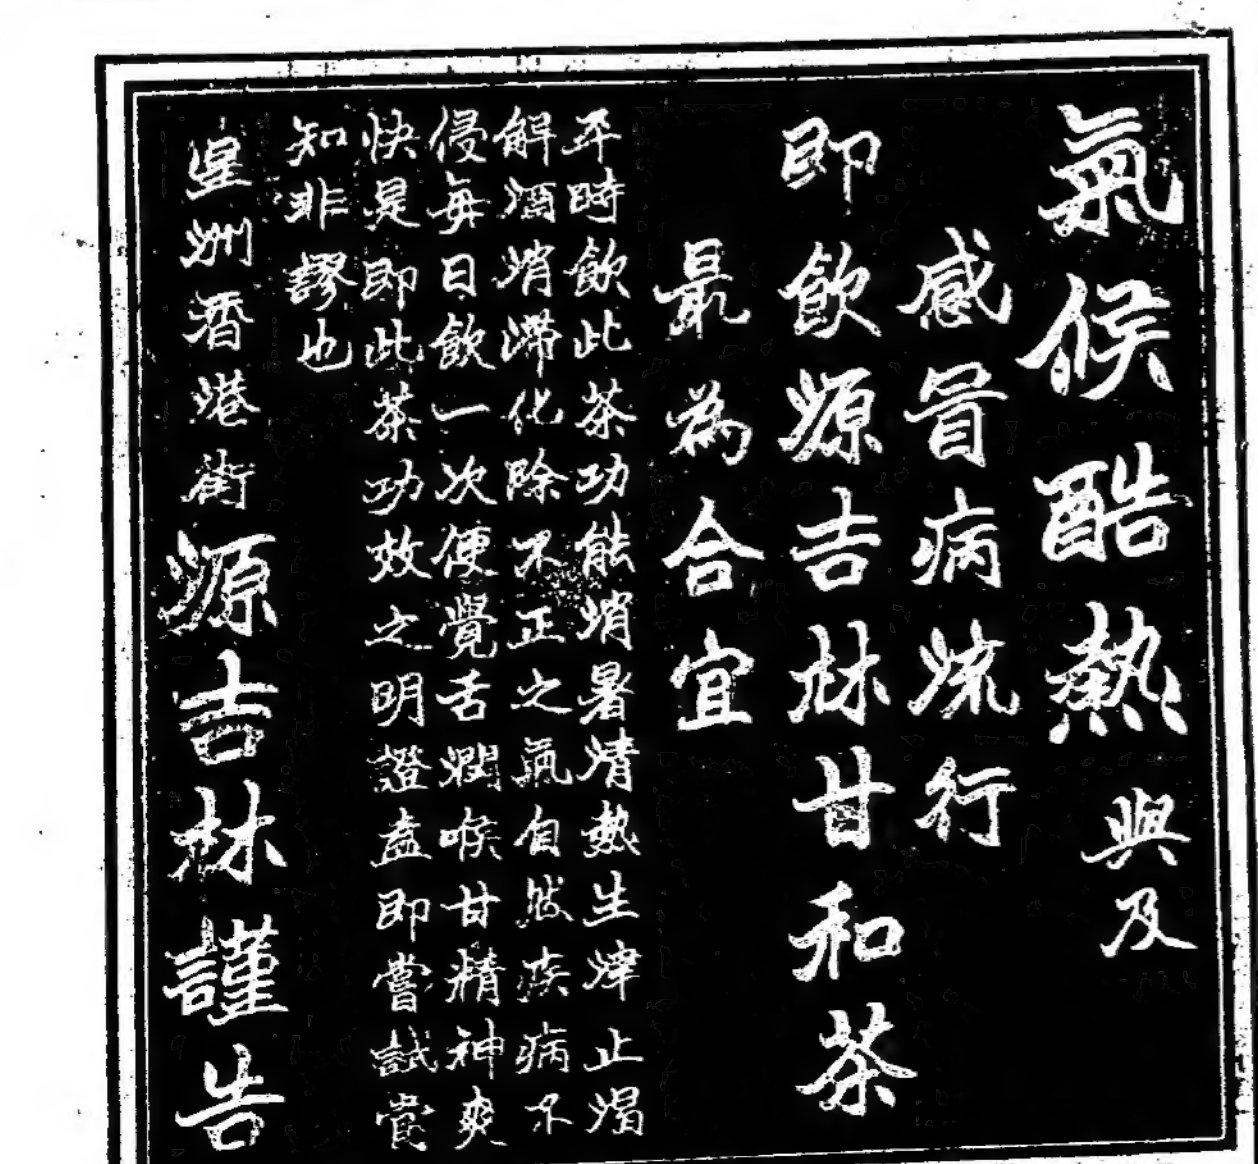 氣候酷熱與及
感冒病流行
即飲源吉林甘和茶
最為合宜
平時飲此茶功能消暑清熱生津止渴
解酒消滯化除不正之氣自然疾病不
侵每日飲一次便覺舌潤喉甘精神爽
快是即此茶功效之明證盍即嘗試嘗
知非謬也
星洲香港街源吉林謹告